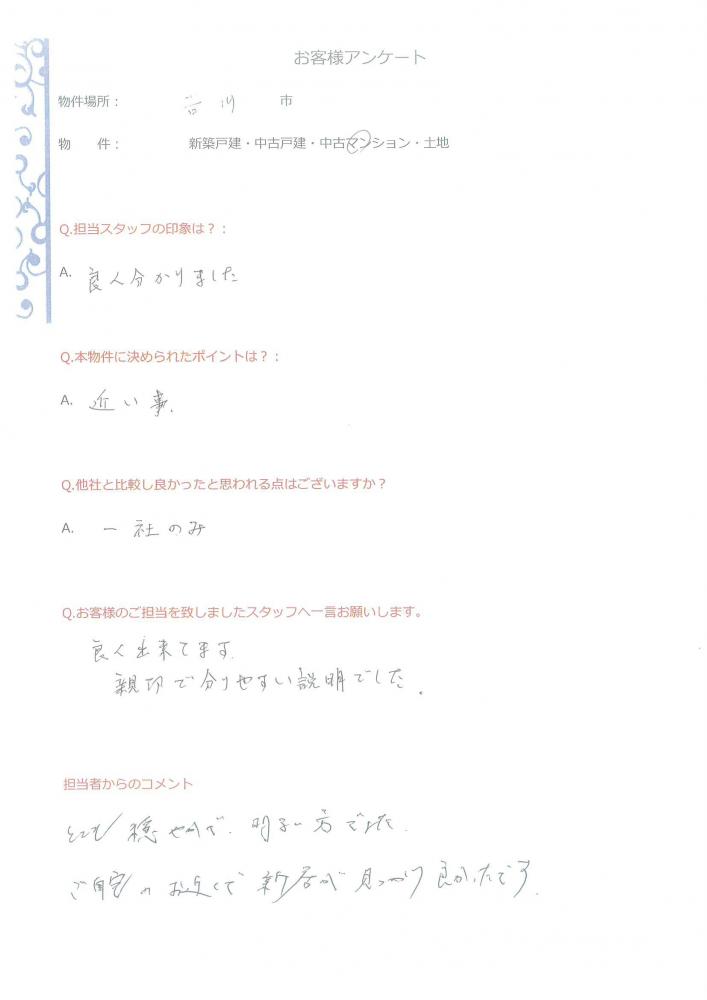 お客様アンケート
物件場所： 市
物　　件： 新築戸建・中古戸建・中古マンション・土地
Q.担当スタッフの印象は？：
A. 良く分かりました
Q.本物件に決められたポイントは？：
A. 近い事.
Q.他社と比較し良かったと思われる点はございますか？
A. 一社のみ
Q.お客様のご担当を致しましたスタッフへ一言お願いします。
良く出来てます.
親切で分りやすい説明でした.
担当者からのコメント
とても穏やかで、明るい方でした.
ご自宅のお近くで新居が見つかり良かったです.